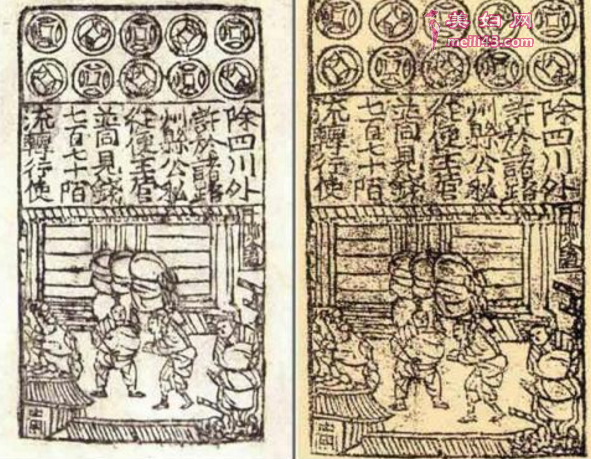 除四川外
許於諸路
州縣公私
從便主管
並同見錢
七百七十陌
流轉行使
美妇网
meili43.com
除四川外
許於諸路
州縣公私
從便主管
並同見錢
七百七十陌
流轉行使